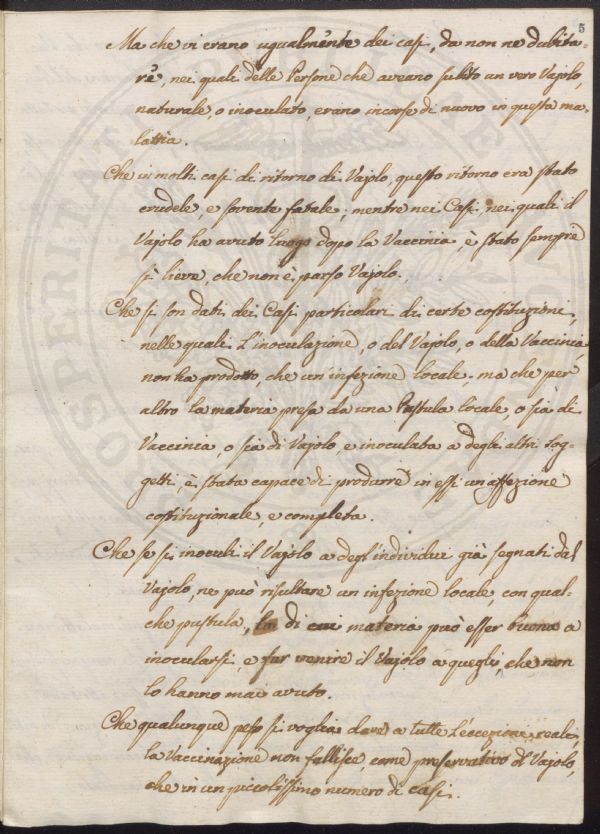 5
Ma che vi erano ugualmente dei casi, da non ne dubita-
re, nei quali delle Persone che aveano subito un vero Vajolo,
naturale, o inoculato, erano incorse di nuovo in questa ma-
lattia.
Che in molti casi di ritorno di Vajolo, questo ritorno era stato
crudele, e sovente fatale; mentre nei Casi, nei quali il
Vajolo ha avuto luogo dopo la Vaccinia, è stato sempre
sì lieve, che non è parso Vajolo.
Che si son dati dei Casi particolari di certe costituzioni,
nelle quali L'inoculazione, o del Vajolo, o della Vaccinia
non ha prodotto, che un'infezione locale; ma che per
altro la materia presa da una Pustula locale, o sia di
Vaccinia, o sia di Vajolo, e inoculata a degli altri sog-
getti, è stata capace di produrre in essi un'affezione
costituzionale, e completa.
Che se si inoculi il Vajolo a degl'individui già segnati dal
Vajolo, ne può risultare un infezione locale, con qual-
che pustula, la di cui materia può esser buona a
inocularsi, e far venire il Vajolo a quegli, che non
lo hanno mai avuto.
Che qualunque peso si voglia dare a tutte L'eccezioni reali,
la Vaccinazione non fallisce, come preservativo del Vajolo,
che in un piccolissimo numero di casi.
PROSPERITA